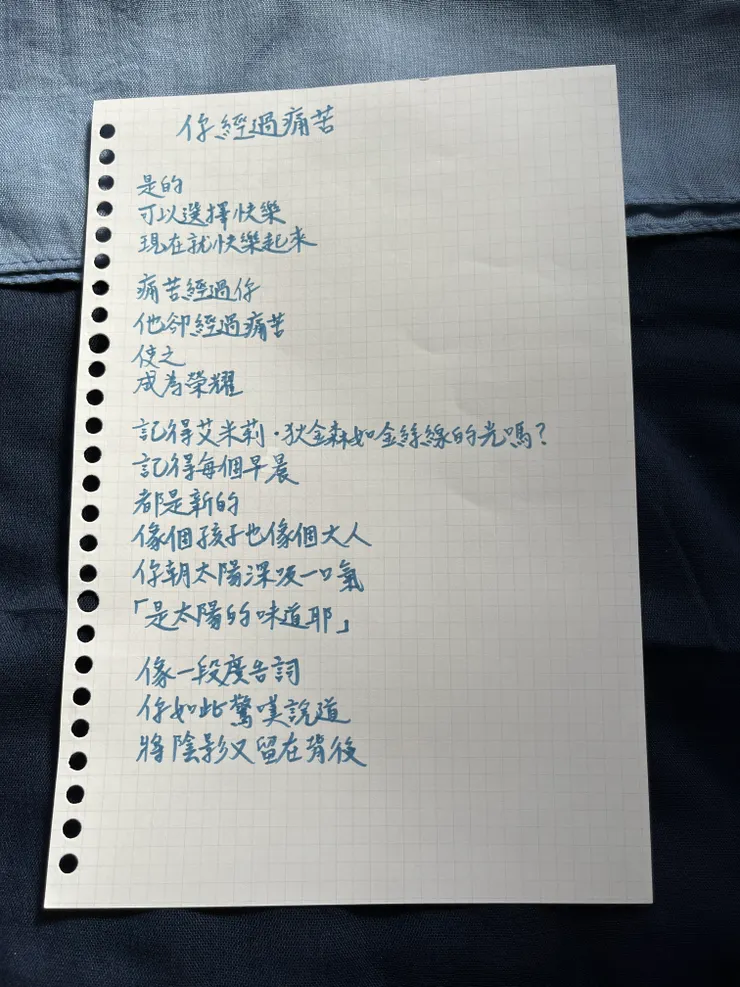 你經過痛苦
是的
可以選擇快樂
現在就快樂起來
痛苦經過你
他卻經過痛苦
使之
成為榮耀
記得艾米莉·狄金森如金絲線的光嗎?
記得每個早晨
都是新的
像個孩子也像個大人
你朝太陽深吸一口氣
「是太陽的味道耶」
像一段廣告詞
你如此驚嘆說道
將陰影又留在背後